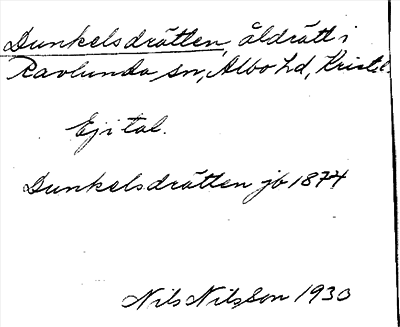 Dunkelsdrätten, åldrätt i
Ravlunda sn, Albo hd, Kristi.
Ej i tal.
Dunkelsdrätten jb 1874
Nils Nilsson 1930